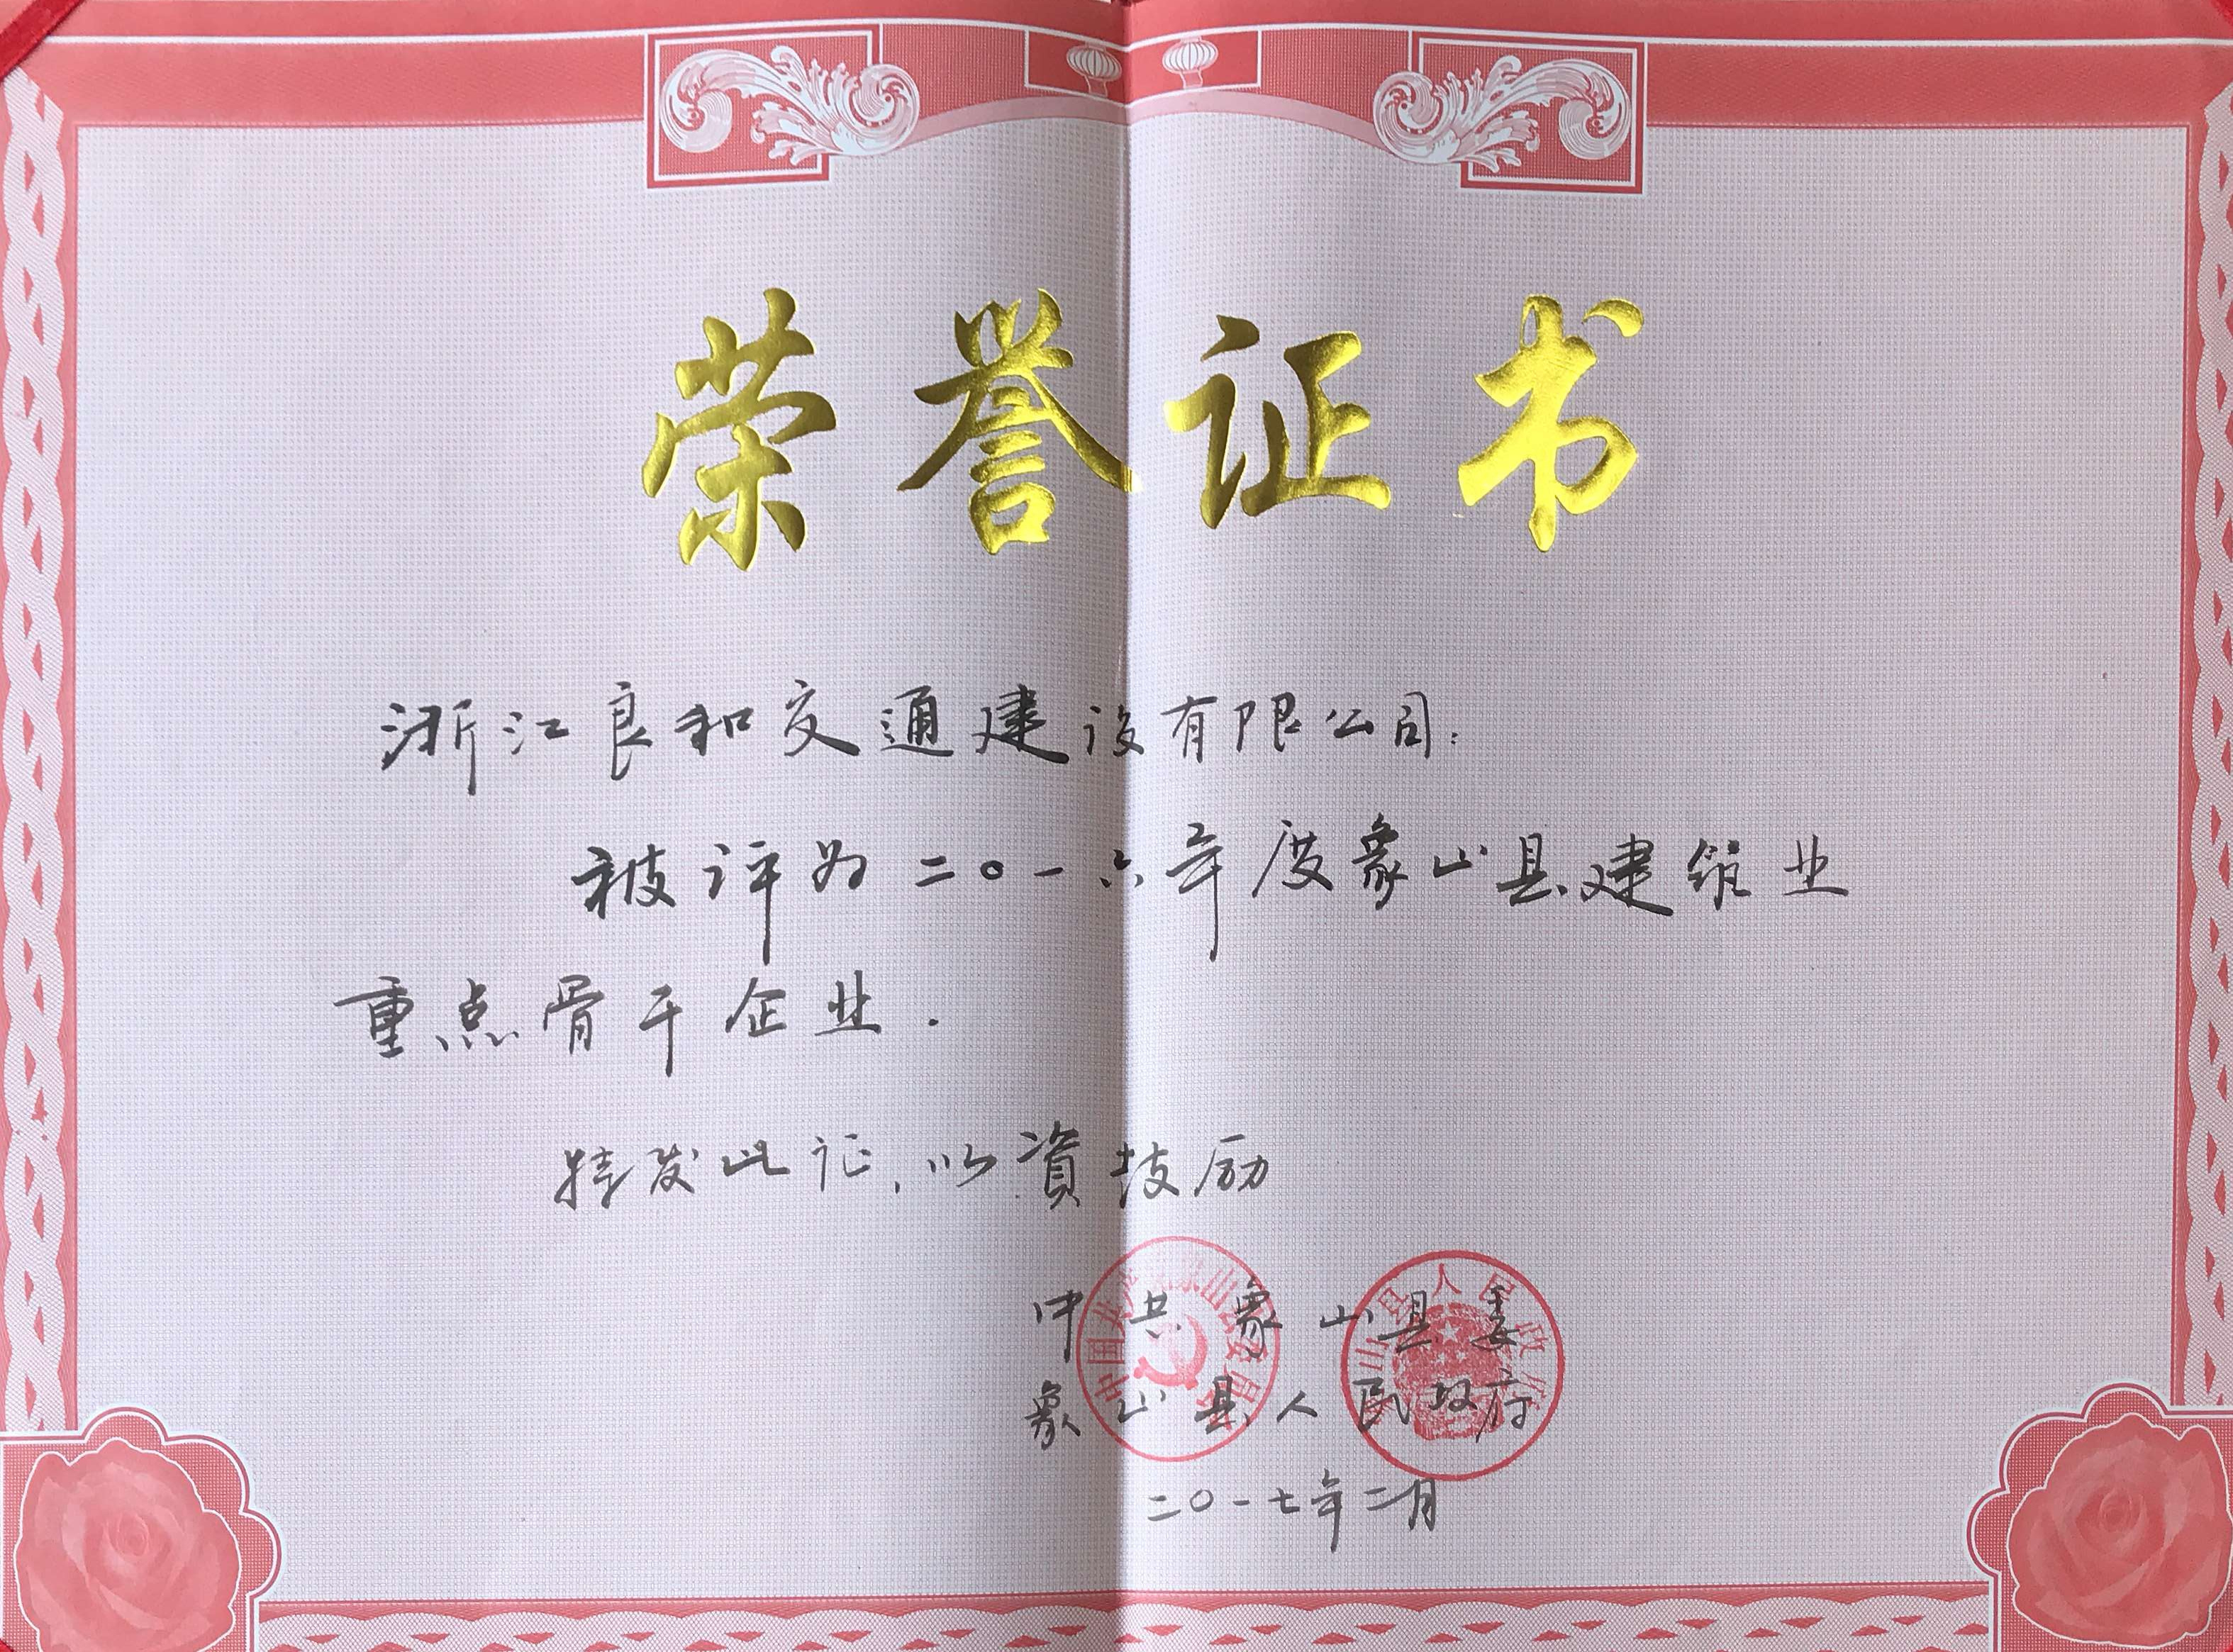 荣誉证书
浙江良和交通建设有限公司:
被评为二〇一六年度象山县建筑业
重点骨干企业.
特发此证,以资鼓励
中共象山县委
象山县人民政府
二〇一七年二月